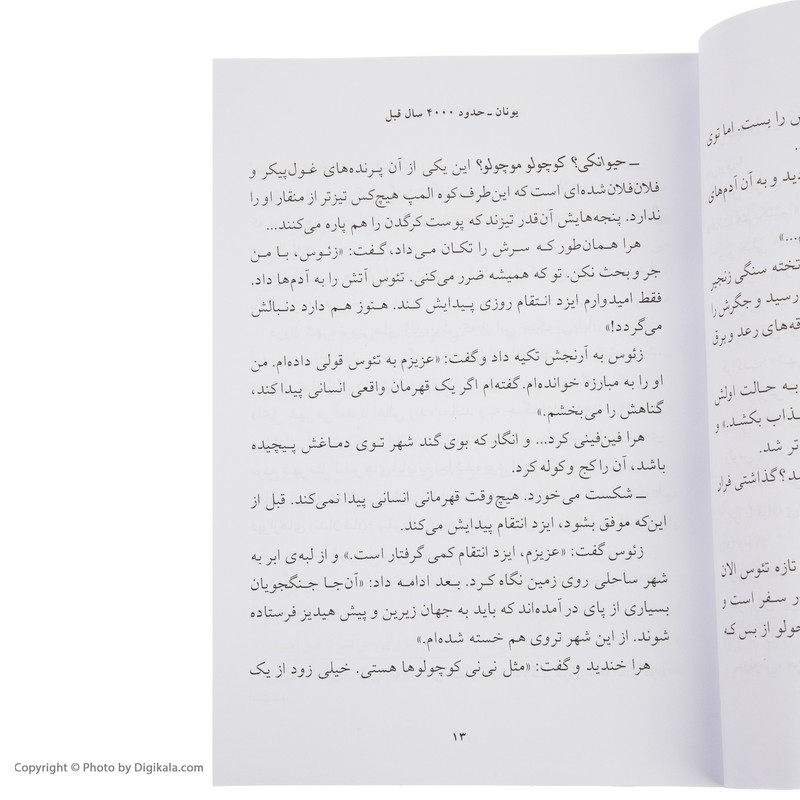 یونان ـ حدود ۴۰۰۰ سال قبل
ـ حیوانکی؟ کوچولو موچولو؟ این یکی از آن پرنده‌های غول‌پیکر و
فلان‌فلان‌شده‌ای است که این‌طرف کوه المپ هیچ‌کس تیزتر از منقار او را
ندارد. پنجه‌هایش آن‌قدر تیزند که پوست کرگدن را هم پاره می‌کنند...
هرا همان‌طور که سرش را تکان می‌داد، گفت: «زئوس، با من
جر و بحث نکن. تو که همیشه ضرر می‌کنی. تئوس آتش را به آدم‌ها داد.
فقط امیدوارم ایزد انتقام روزی پیدایش کند. هنوز هم دارد دنبالش
می‌گردد!»
زئوس به آرنجش تکیه داد و گفت: «عزیزم به تئوس قولی داده‌ام. من
او را به مبارزه خوانده‌ام. گفته‌ام اگر یک قهرمان واقعی انسانی پیدا کند،
گناهش را می‌بخشم.»
هرا فین‌فینی کرد... و انگار که بوی گند شهر توی دماغش پیچیده
باشد، آن را کج و کوله کرد.
ـ شکست می‌خورد. هیچ‌وقت قهرمانی انسانی پیدا نمی‌کند. قبل از
این‌که موفق بشود، ایزد انتقام پیدایش می‌کند.
زئوس گفت: «عزیزم، ایزد انتقام کمی گرفتار است.» و از لبه‌ی ابر به
شهر ساحلی روی زمین نگاه کرد. بعد ادامه داد: «آن‌جا جنگجویان
بسیاری از پای در آمده‌اند که باید به جهان زیرین و پیش هیدیز فرستاده
شوند. از این شهر تروی هم خسته شده‌ام.»
هرا خندید و گفت: «مثل نی‌نی کوچولوها هستی. خیلی زود از یک
۱۳
را بست. اما توی
دید و به آن آدم‌های
...»
تخته سنگی زنجیر
رسید و جگرش را
قه‌های رعد و برق
به حالت اولش
ذاب بکشد.» و
تر شد.
د؟ گذاشتی فرار
تازه تئوس الان
ر سفر است و
چولو از بس که
Copyright © Photo by Digikala.com